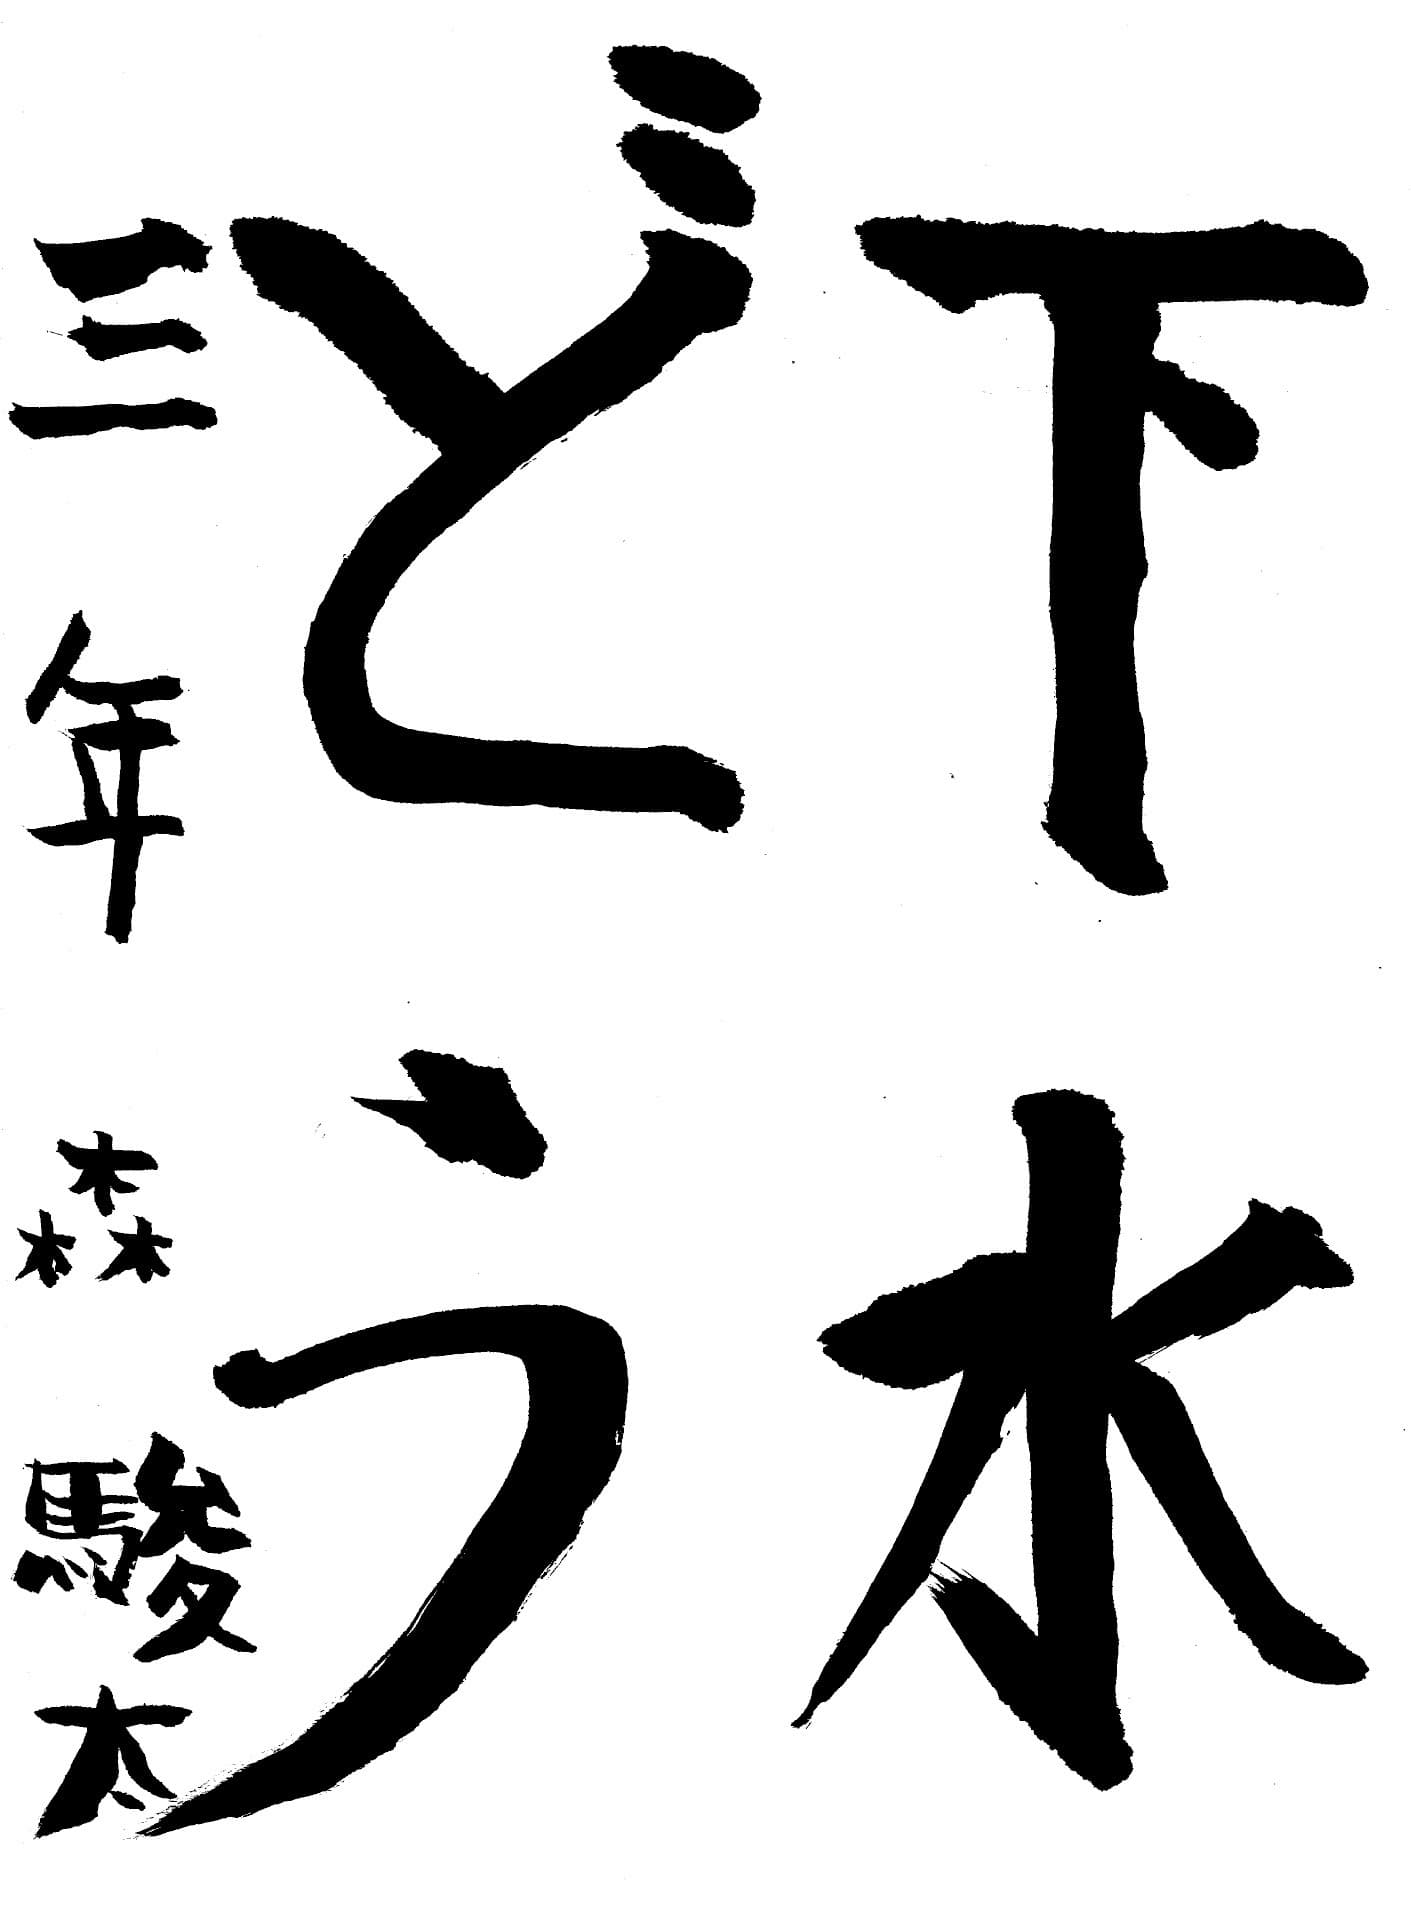 下水
どう
三年 森駿太